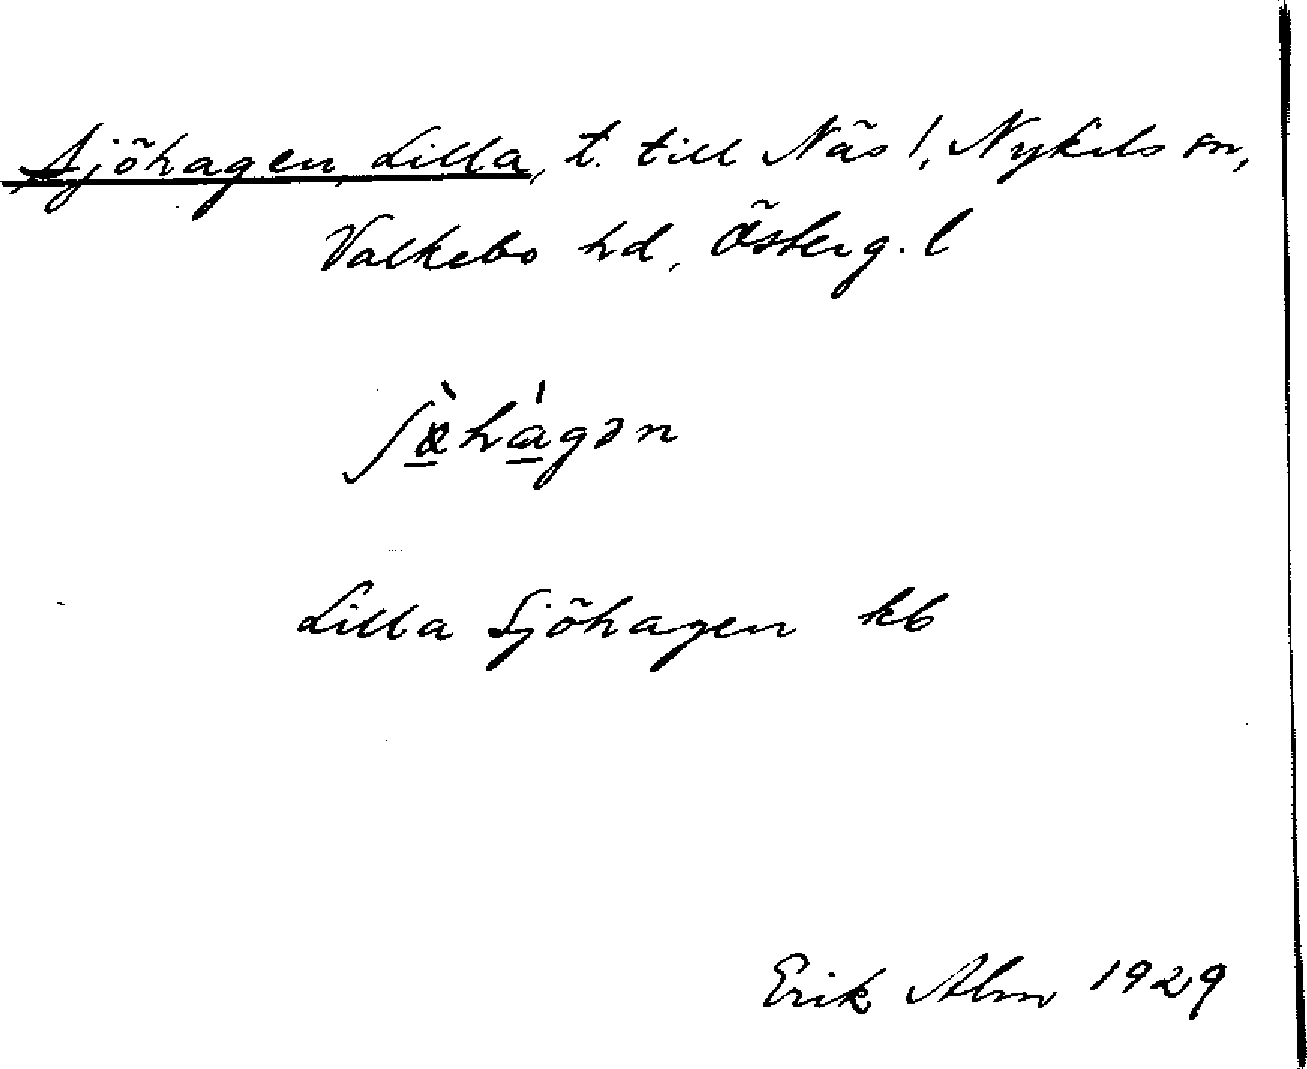 Sjöhagen, Lilla, t. till Näs 1, Nykils sn,
Valkebo hd, Österg. l
ʃæ̀hágən
Lilla Sjöhagen kb
Erik Alm 1929